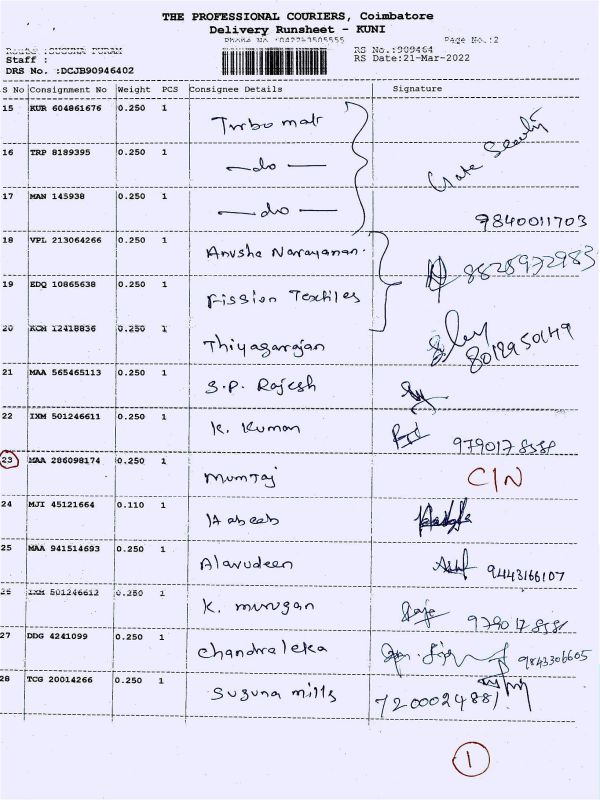 THE PROFESSIONAL COURIERS, Coimbatore
Delivery Runsheet - KUNI
Phone No :04223505555 Page No.:2
Route :SUGUNA PURAM RS No.:909464
Staff : RS Date:21-Mar-2022
DRS No. :DCJB90946402
S No Consignment No Weight PCS Consignee Details Signature
15 KUR 604861676 0.250 1 Turbo mat
16 TRP 8189395 0.250 1 —do— Gate
17 MAN 145938 0.250 1 —do— 9840011703
18 VPL 213064266 0.250 1 Anusha Narayanan.
19 EDQ 10865638 0.250 1 Fission Textiles
20 KCM 12418836 0.250 1 Thiyagarajan
21 MAA 565465113 0.250 1 S.P. Rajesh
22 IXM 501246611 0.250 1 K. Kuman 979017 8581
23 MAA 286098174 0.250 1 Mumtaj C/N
24 MJI 45121664 0.110 1 Habeeb
25 MAA 941514693 0.250 1 Alavudeen 9443166107
26 IXM 501246612 0.250 1 K. murugan Raje 979017 8581
27 DDG 4241099 0.250 1 Chandraleka 9843306605
28 TCG 20014266 0.250 1 Suguna mills 7200024881
1